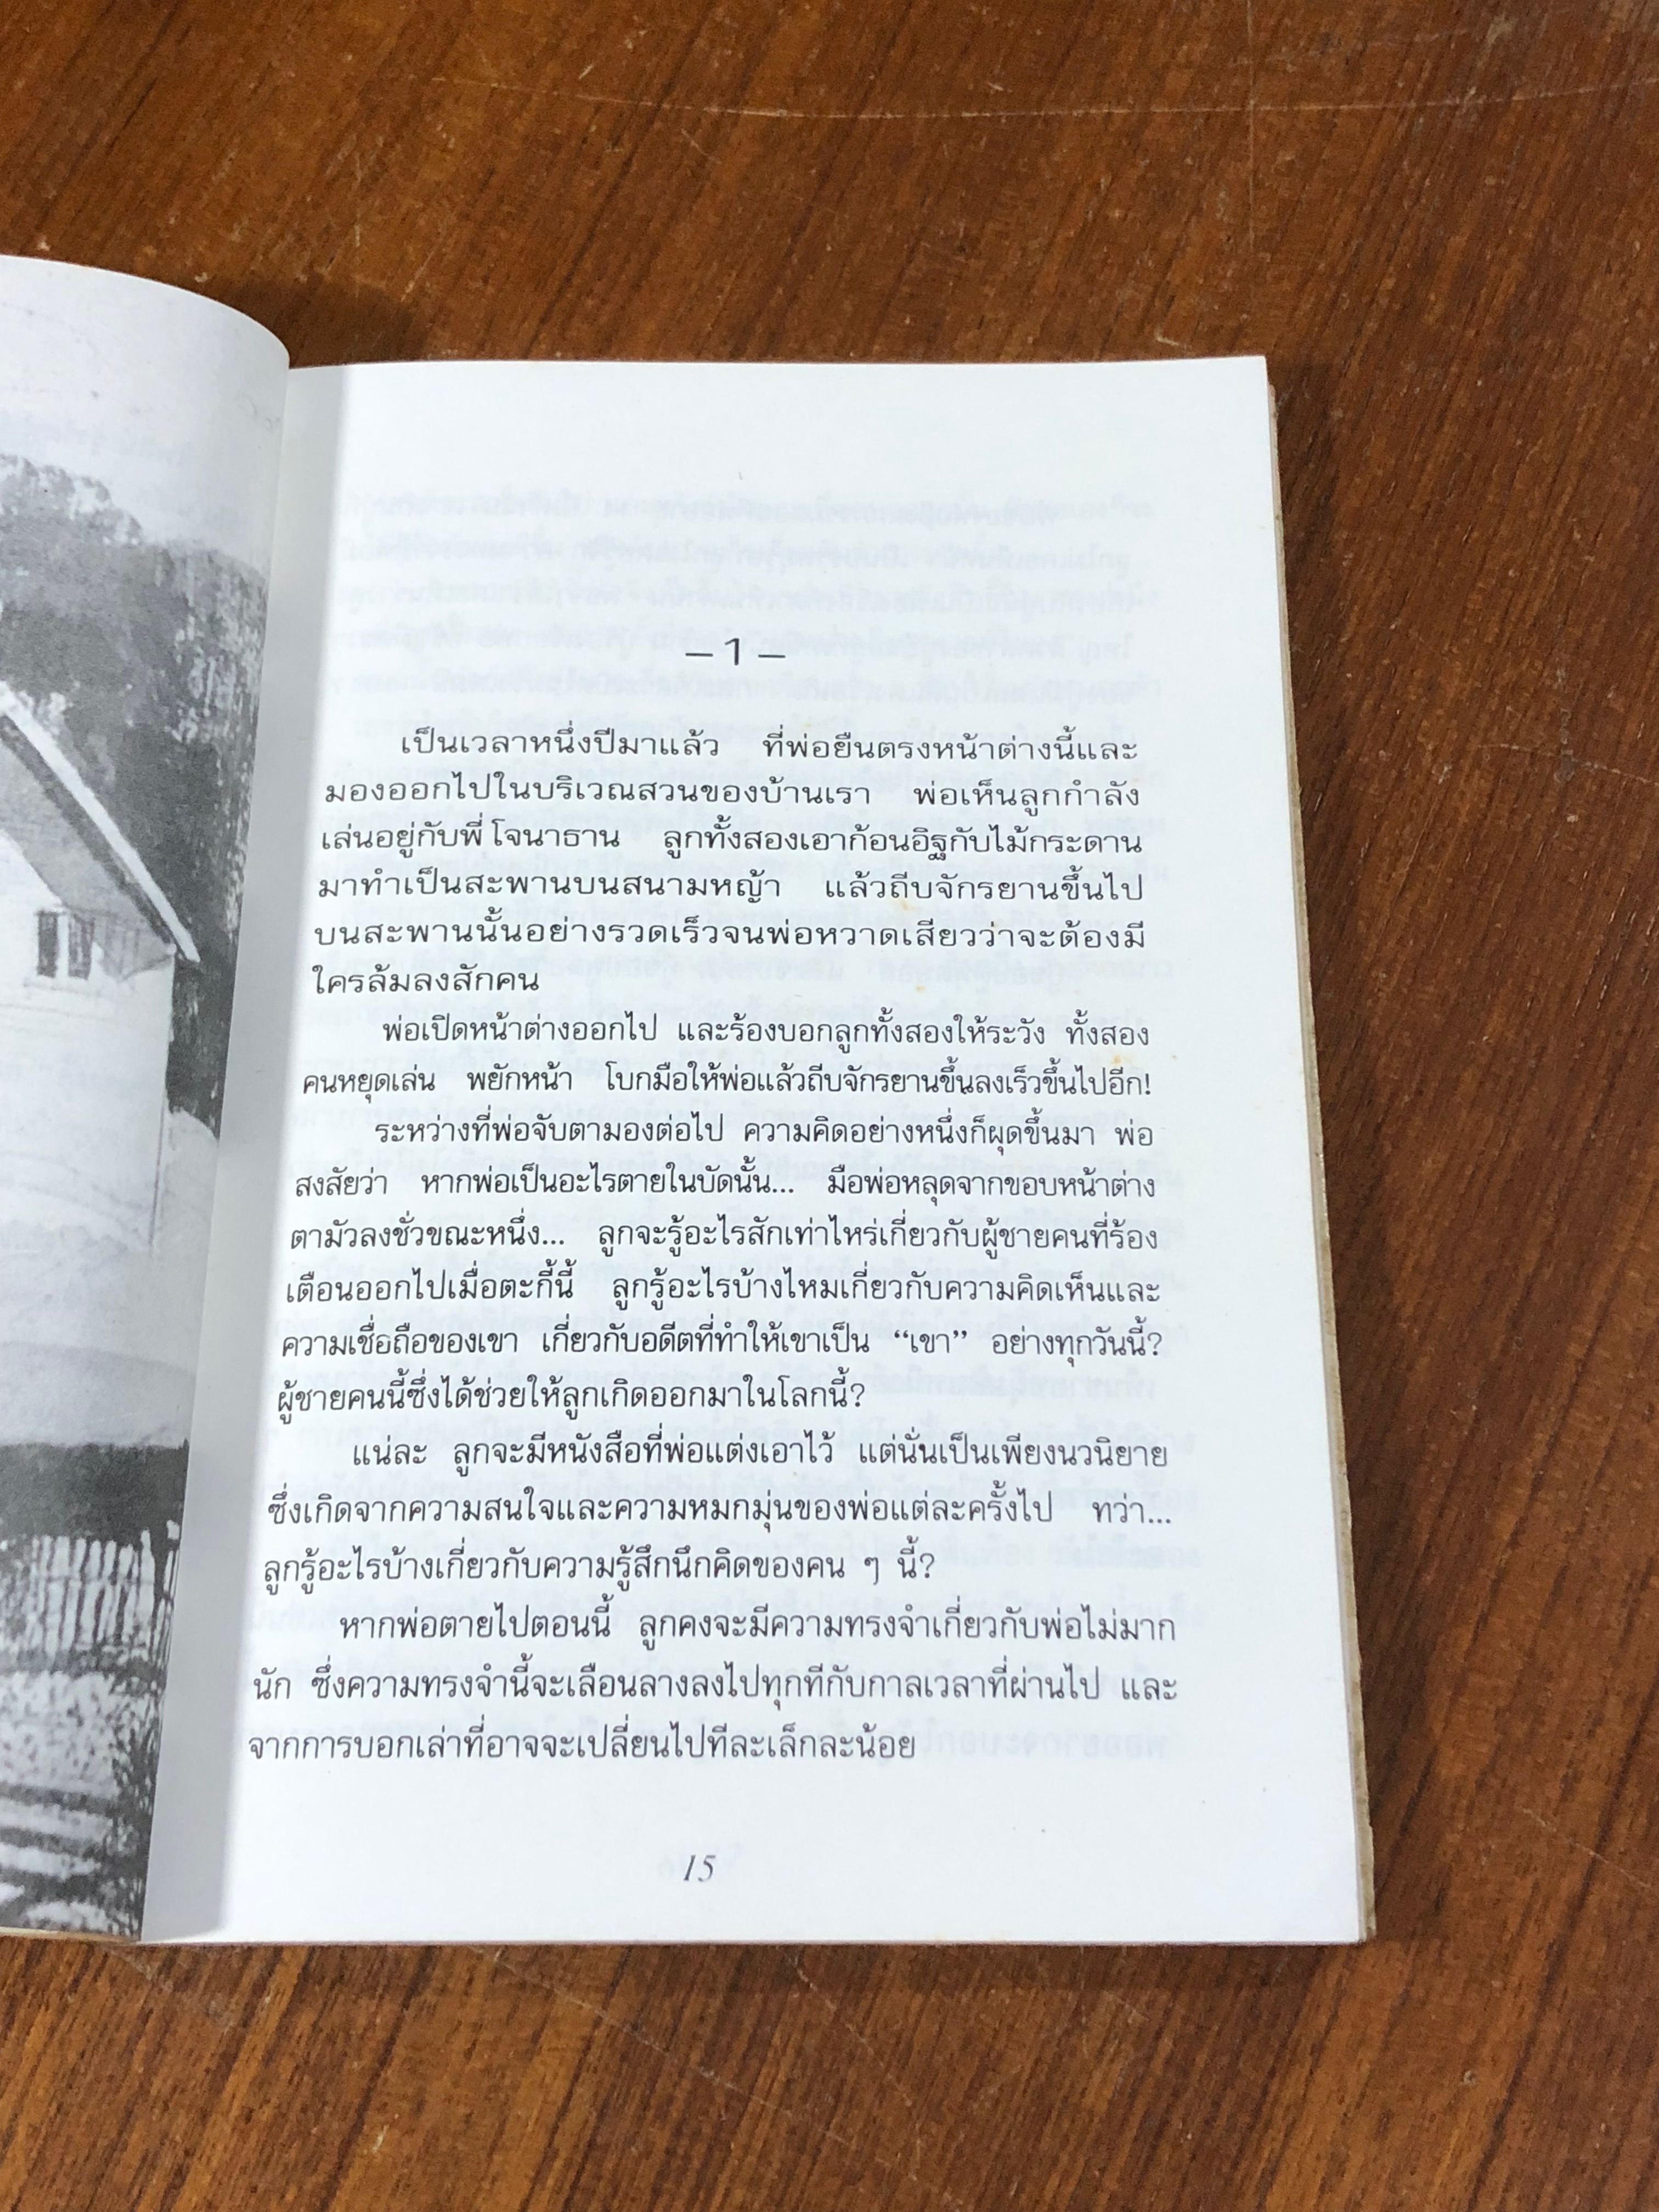 – 1 –
เป็นเวลาหนึ่งปีมาแล้ว ที่พ่อยืนตรงหน้าต่างนี้และ
มองออกไปในบริเวณสวนของบ้านเรา พ่อเห็นลูกกำลัง
เล่นอยู่กับพี่โจนาธาน ลูกทั้งสองเอาก้อนอิฐกับไม้กระดาน
มาทำเป็นสะพานบนสนามหญ้า แล้วถีบจักรยานขึ้นไป
บนสะพานนั้นอย่างรวดเร็วจนพ่อหวาดเสียวว่าจะต้องมี
ใครล้มลงสักคน
พ่อเปิดหน้าต่างออกไป และร้องบอกลูกทั้งสองให้ระวัง ทั้งสอง
คนหยุดเล่น พยักหน้า โบกมือให้พ่อแล้วถีบจักรยานขึ้นลงเร็วขึ้นไปอีก!
ระหว่างที่พ่อจับตามองต่อไป ความคิดอย่างหนึ่งก็ผุดขึ้นมา พ่อ
สงสัยว่า หากพ่อเป็นอะไรตายในบัดนั้น... มือพ่อหลุดจากขอบหน้าต่าง
ตามัวลงชั่วขณะหนึ่ง... ลูกจะรู้อะไรสักเท่าไหร่เกี่ยวกับผู้ชายคนที่ร้อง
เตือนออกไปเมื่อตะกี้นี้ ลูกรู้อะไรบ้างไหมเกี่ยวกับความคิดเห็นและ
ความเชื่อถือของเขา เกี่ยวกับอดีตที่ทำให้เขาเป็น “เขา” อย่างทุกวันนี้?
ผู้ชายคนนี้ซึ่งได้ช่วยให้ลูกเกิดออกมาในโลกนี้?
แน่ละ ลูกจะมีหนังสือที่พ่อแต่งเอาไว้ แต่นั่นเป็นเพียงนวนิยาย
ซึ่งเกิดจากความสนใจและความหมกมุ่นของพ่อแต่ละครั้งไป ทว่า...
ลูกรู้อะไรบ้างเกี่ยวกับความรู้สึกนึกคิดของคน ๆ นี้?
หากพ่อตายไปตอนนี้ ลูกคงจะมีความทรงจำเกี่ยวกับพ่อไม่มาก
นัก ซึ่งความทรงจำนี้จะเลือนลางลงไปทุกทีกับกาลเวลาที่ผ่านไป และ
จากการบอกเล่าที่อาจจะเปลี่ยนไปทีละเล็กละน้อย
15